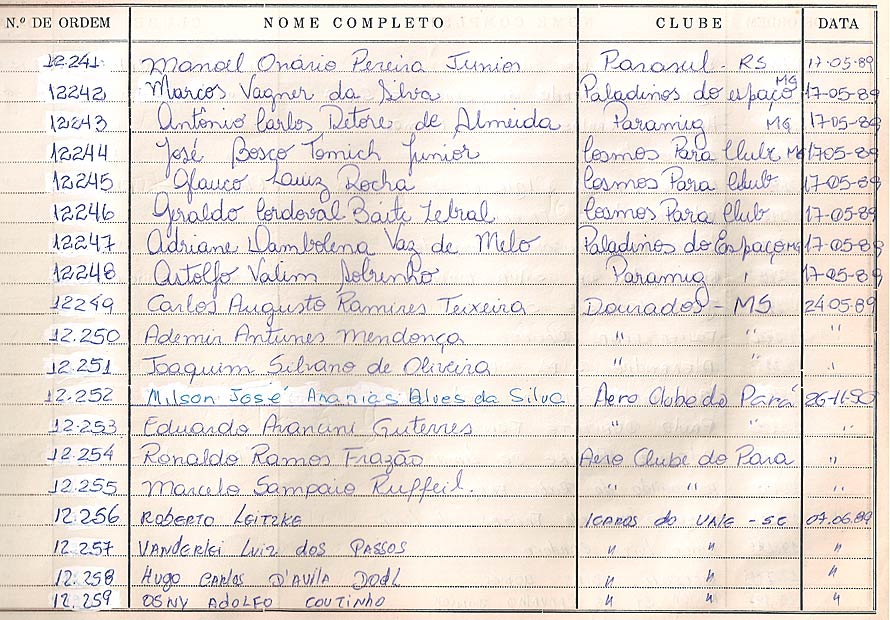 N.º DE ORDEM NOME COMPLETO CLUBE DATA
12.241 Manoel Onário Pereira Junior Parasul - RS 17-05-89
12242 Marcos Vagner da Silva Paladinos do espaço MG 17-05-89
12243 Antônio Carlos Detore de Almeida Paramig MG 17-05-89
12244 José Bosco Tomich Junior Cosmos Para Clube MG 1705-89
12245 Glauco Luiz Rocha Cosmos Para Club 17-05-89
12246 Geraldo Cordoval 17-05-89 Cosmos Para Club
12247 Adriane Dambolena Vaz de Melo Paladinos do Espaço MG 17-05-89
12248 Astolfo Valim Sobrinho Paramig " 17-05-89
12249 Carlos Augusto Ramires Teixeira Dourados - MS 24 05-89
12.250 Ademir Antunes Mendonça " " "
12.251 Joaquim Silvano de Oliveira " " "
12.252 Milson José Ananias Alves da Silva Aero Clube do Pará 26-11-90
12.253 Eduardo Avancini Guterres " " "
12.254 Ronaldo Ramos Frazão Aero Clube do Para "
12.255 Marcelo Sampaio Ruffeil. " " "
12.256 ROBERTO LEITZKE ICAROS DO VALE - SC 07.06.89
12.257 VANDERLEI LUIZ DOS PASSOS " " "
12.258 HUGO CARLOS D'AVILA DODL " " "
12.259 OSNY ADOLFO COUTINHO " " "